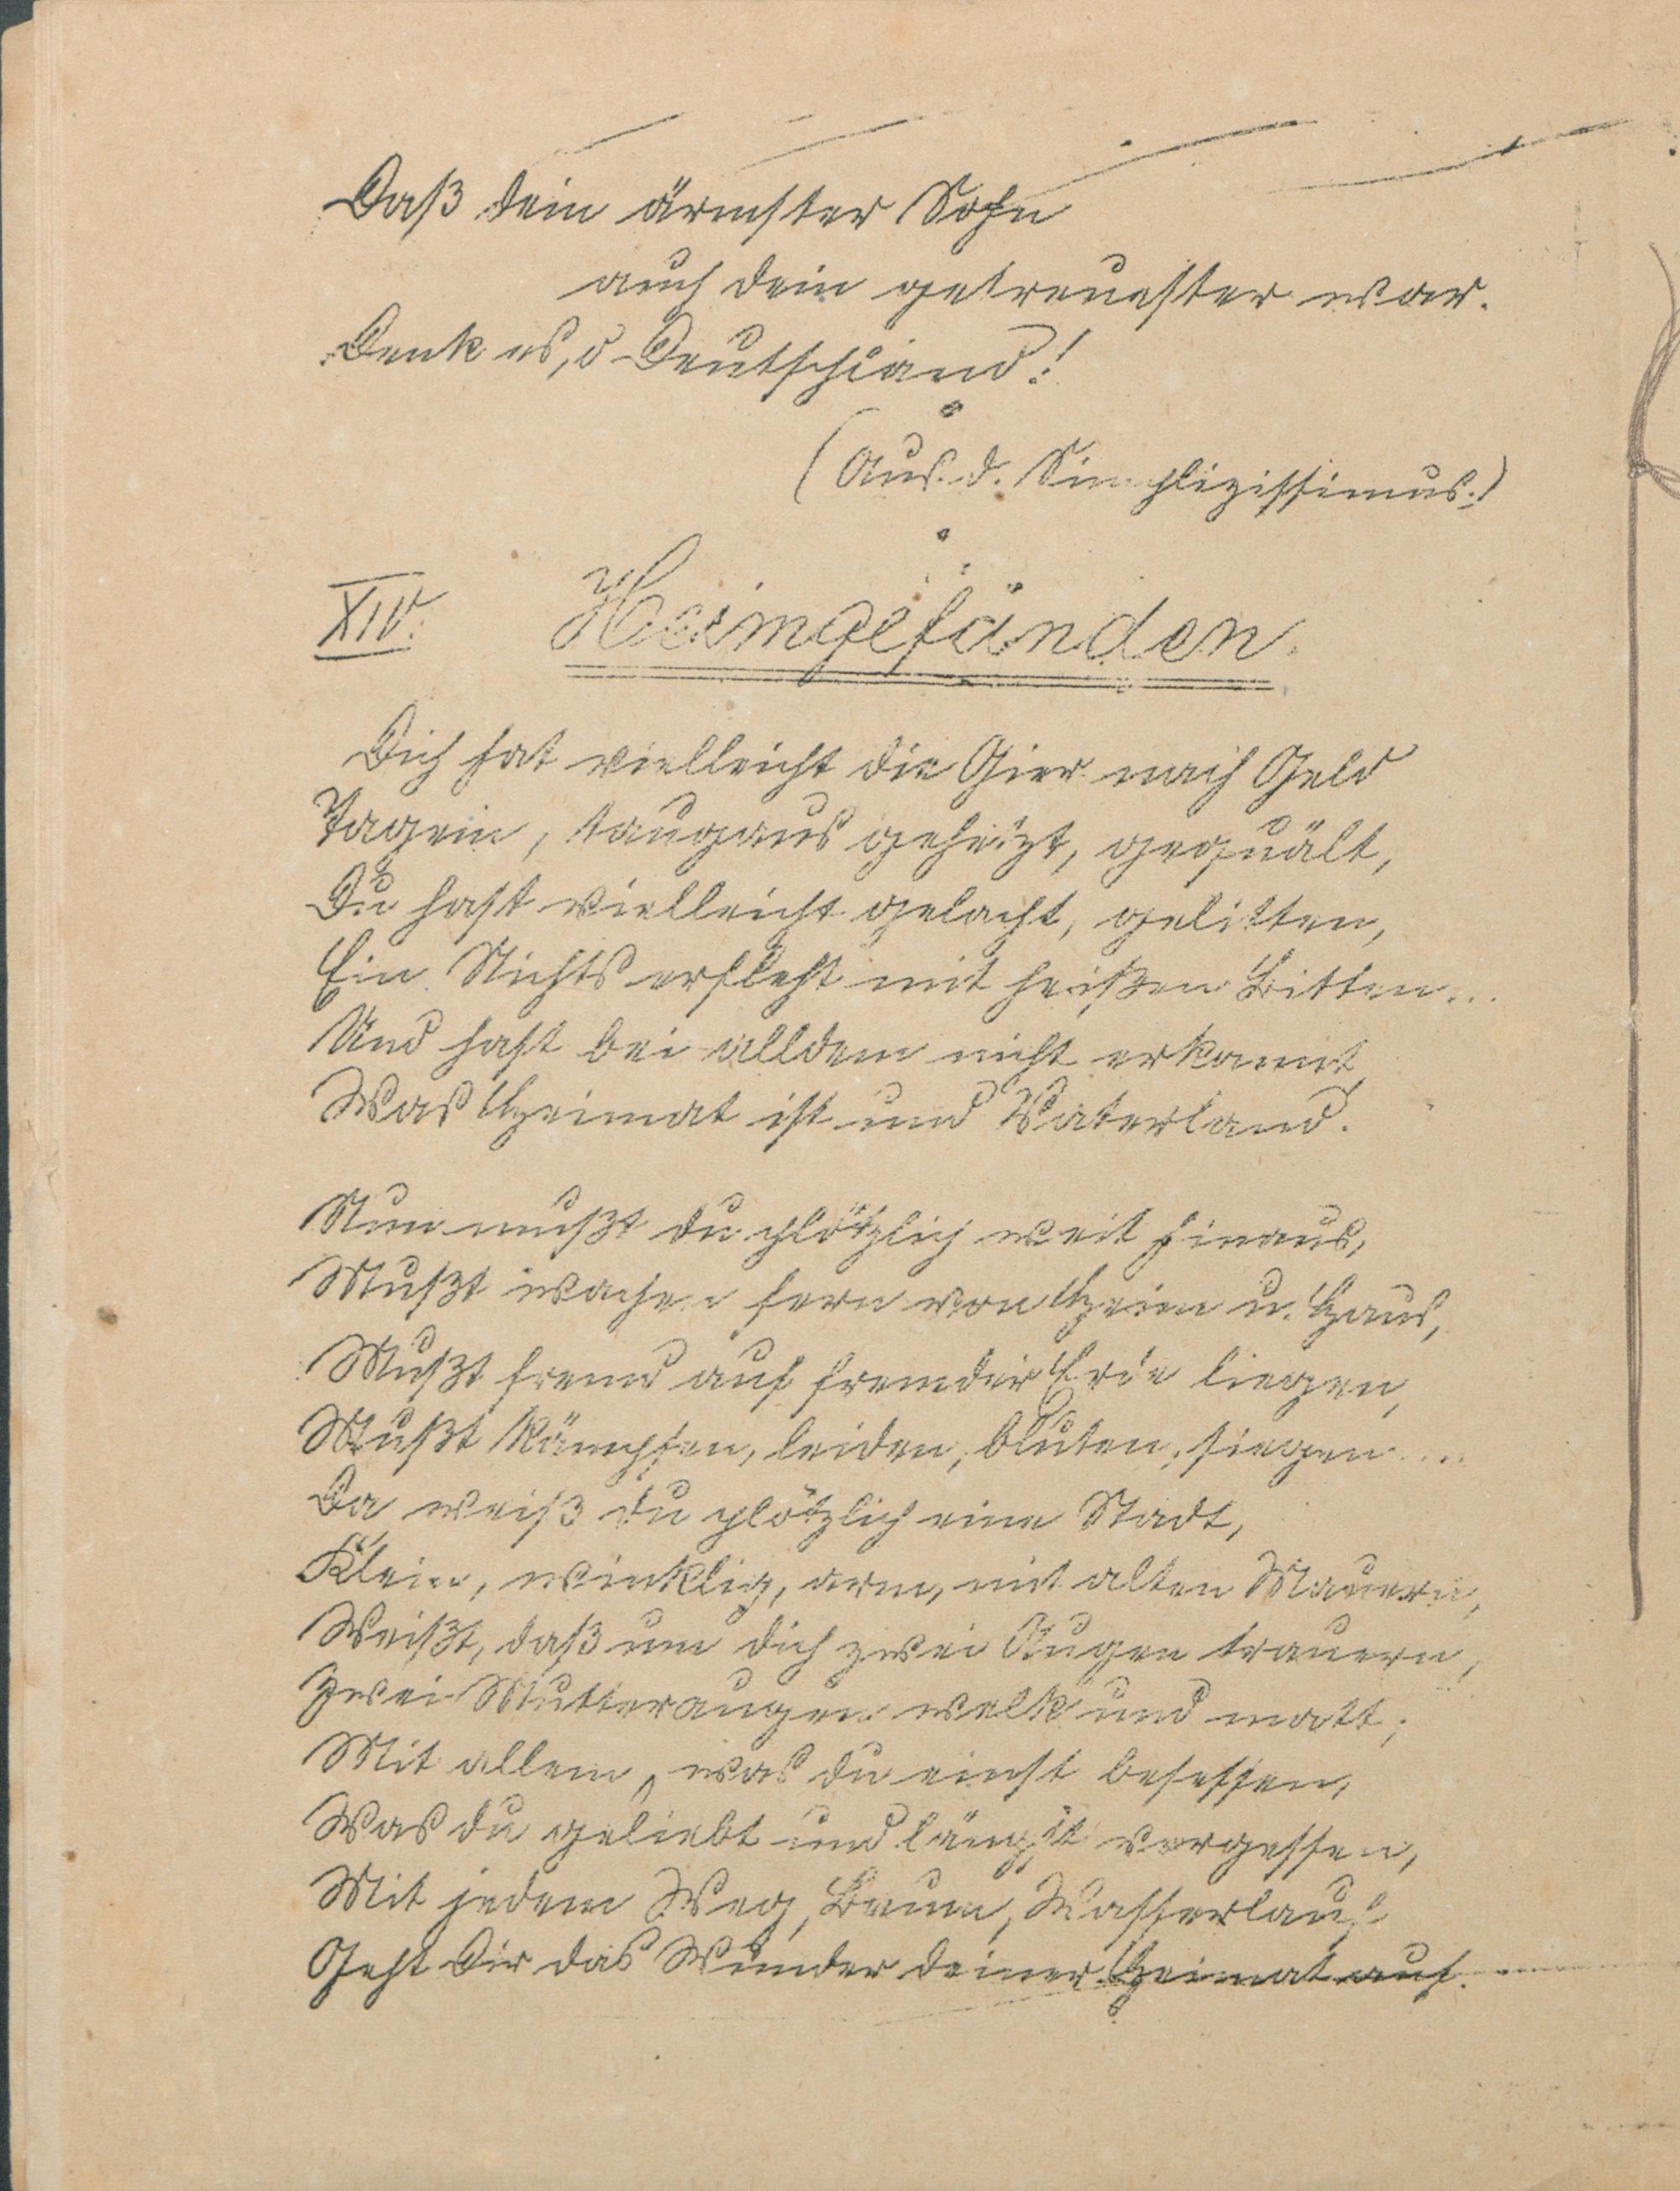 Daß dein ärmster Sohn
auch dein getreuester war.
Denk es, o Deutschland!
(Aus d. Simplizissimus.)
XIV. Heimgefunden.
Dich hat vielleicht die Gier nach Geld
Tagein, tagaus gehetzt, gequält,
Du hast vielleicht gelacht, gelitten,
Ein Nichts erfleht mit heißen Bitten...
Und hast bei alldem nicht erkannt
Was Heimat ist und Vaterland.
Nun mußt du plötzlich weit hinaus,
Mußt wachen fern von Heim u. Haus,
Mußt fremd auf fremder Erde liegen,
Mußt kämpfen, leiden, bluten, siegen....
Da weiß du plötzlich eine Stadt,
Klein, winklig, arm, mit alten Mauern,
Weißt, daß um dich zwei Augen trauern,
Zwei Mutteraugen welk und matt;
Mit allem, was du einst besessen,
Was du geliebt und längst vergessen,
Mit jedem Weg, Baum, Wasserlauf
Geht Dir das Wunder deiner Heimat auf.